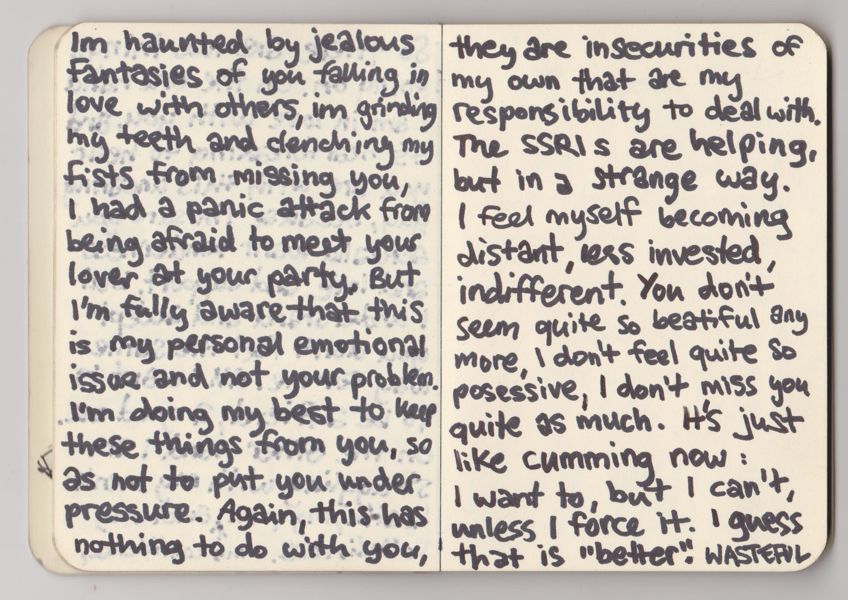 Im haunted by jealous
fantasies of you falling in
love with others, im grinding
my teeth and clenching my
fists from missing you,
I had a panic attack from
being afraid to meet your
lover at your party. But
I'm fully aware that this
is my personal emotional
issue and not your problem.
I'm doing my best to keep
these things from you, so
as not to put you under
pressure. Again, this has
nothing to do with you,
they are insecurities of
my own that are my
responsibility to deal with.
The SSRIs are helping,
but in a strange way.
I feel myself becoming
distant, less invested,
indifferent. You don't
seem quite so beatiful any
more, I don't feel quite so
posessive, I don't miss you
quite as much. It's just
like cumming now:
I want to, but I can't,
unless I force it. I guess
that is "better". WASTEFUL